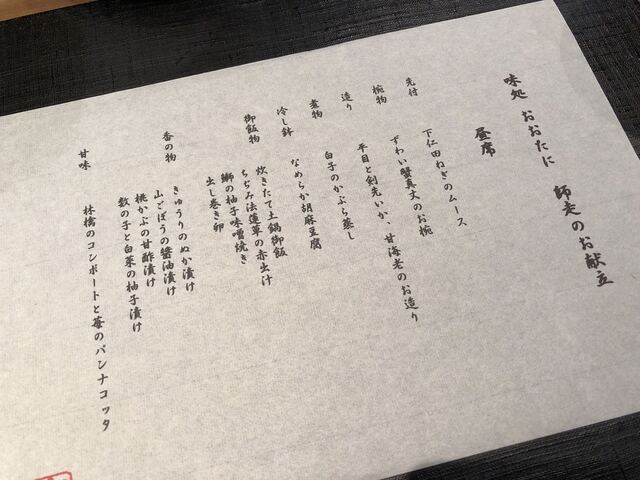 味処 おおたに 師走のお献立
昼席
先付
下仁田ねぎのムース
椀物
ずわい蟹真丈のお椀
造り
平目と剣先いか、甘海老のお造り
煮物
白子のかぶら蒸し
冷し鉢
なめらか胡麻豆腐
御飯物
炊きたて土鍋御飯
ちぢみ法蓮草の赤出汁
鰤の柚子味噌焼き
出し巻き卵
香の物
きゅうりのぬか漬け
山ごぼうの醤油漬け
桃かぶの甘酢漬け
数の子と白菜の柚子漬け
甘味
林檎のコンポートと苺のパンナコッタ